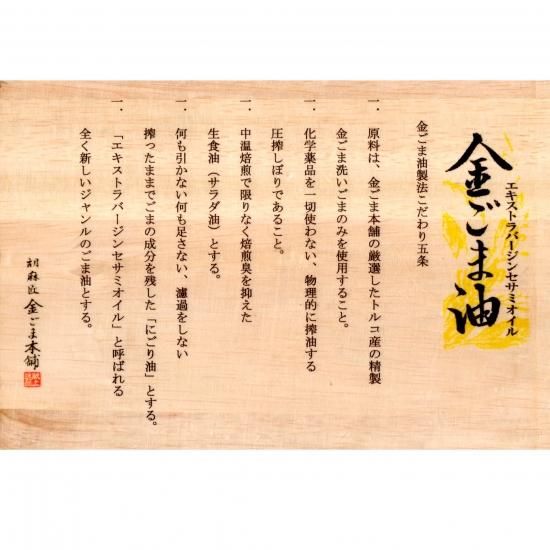 金ごま油
エキストラバージンセサミオイル
金ごま油製法こだわり五条
一．原料は、金ごま本舗の厳選したトルコ産の精製
金ごま洗いごまのみを使用すること。
一．化学薬品を一切使わない、物理的に搾油する
圧搾しぼりであること。
一．中温焙煎で限りなく焙煎臭を抑えた
生食油（サラダ油）とする。
一．何も引かない何も足さない、濾過をしない
搾ったままでごまの成分を残した「にごり油」とする。
一．「エキストラバージンセサミオイル」と呼ばれる
全く新しいジャンルのごま油とする。
胡麻匠 金ごま本舗